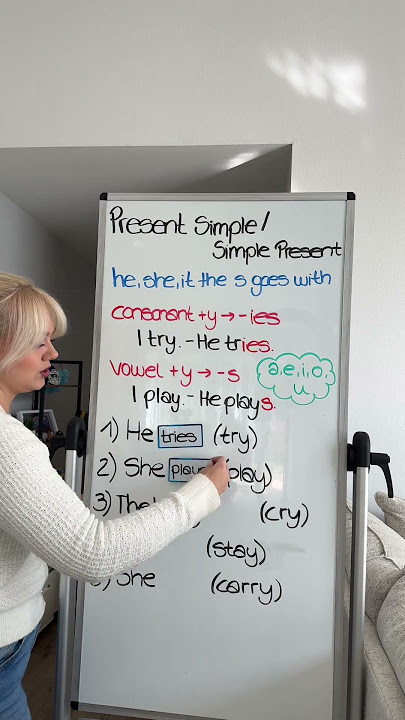 Present Simple/
Simple Present
he, she, it the s goes with
consonant +y → -ies
I try. - He tries.
vowel +y → -s
a, e, i, o,
u
I play. - He plays.
1) He tries (try)
2) She (play)
3) (cry)
(stay)
She (carry)